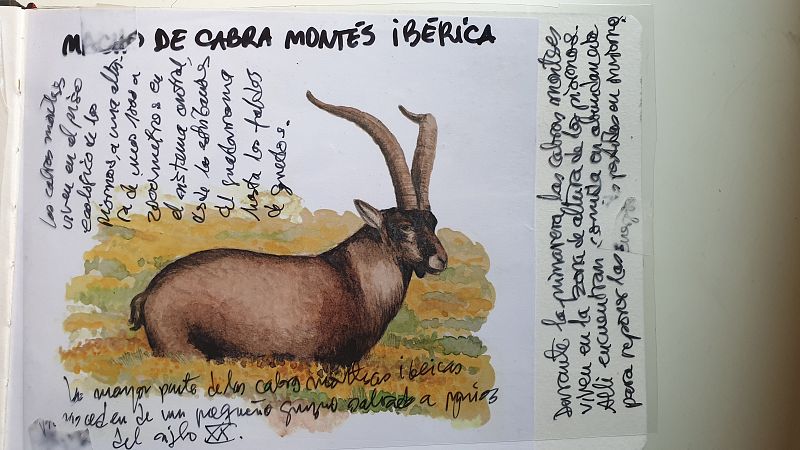 MACHO DE CABRA MONTÉS IBÉRICA
Las cabras monteses
viven en el piso
ecológico de los
piornos a una altu-
ra de unos 1000 a
2000 metros en
el sistema central
desde las estribaciones
del guadarrama
hasta las faldas
de gredos.
La mayor parte de las cabras ibéricas
proceden de un pequeño grupo salvado a
del siglo XX.
Durante la primavera las cabras monteses
viven en la zona de altura de los piornos.
Allí encuentran comida en abundancia
para reponer las perdidas en invierno.